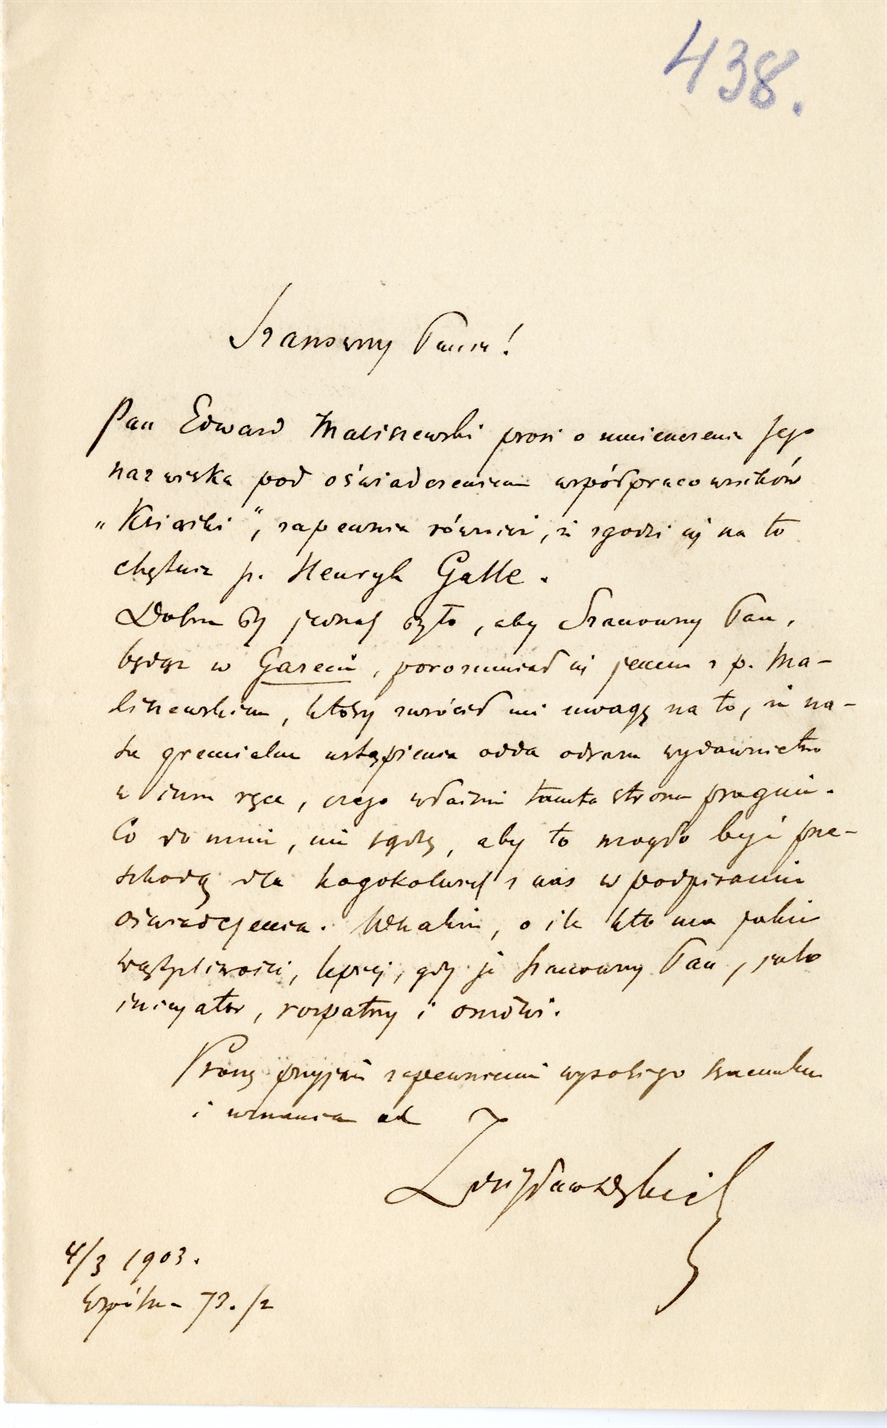 438.
Szanowny Panie!
Pan Edward Maliszewski prosi o umieszczenie Jego
nazwiska pod oświadczeniem współpracowników
„Książki", zapewnia również, iż zgodzi się na to
chętnie p. Henryk Galle.
Dobrze by jednak było, aby Szanowny Pan,
będąc w Gazecie, porozumiał się jeszcze z p. Ma-
liszewskim, który zwrócił mi uwagę na to, iż na-
sze gremialne ustąpienie odda odrazu wydawnictwo
w inne ręce, czego właśnie tamta strona pragnie.
Co do mnie, nie sądzę, aby to mogło być prze-
szkodą dla kogokolwiek z nas w podpisaniu
oświadczenia. Wszakże, o ile kto ma jakie
wątpliwości, lepiej, gdy je Szanowny Pan, jako
inicyator, rozpatrzy i omówi.
Proszę przyjąć zapewnienie wysokiego szacunku
i uznania od
4/3 1903.
Wspólna 73. /2